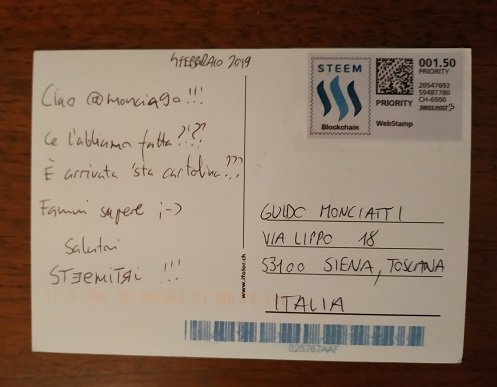 4 FEBBRAIO 2019
Ciao @monciago!!!
Ce l'abbiamo fatta?!??
È arrivata 'sta cartolina???
Fammi sapere ;-)
Salutoni
STEEMITRI !!!
STEEM
Blockchain
001.50
PRIORITY
20547692
59487780
CH-6900
SWISS POST
PRIORITY
WebStamp
www.ifolor.ch
GUIDO MONCIATTI
VIA LIPPO 18
53100 SIENA, TOSCANA
ITALIA
025267AAF